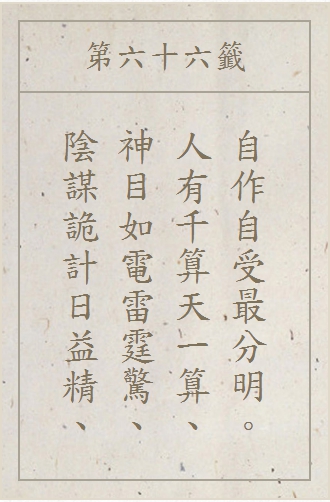 第六十六籤
陰謀詭計日益精、
神目如電雷霆驚、
人有千算天一算、
自作自受最分明。